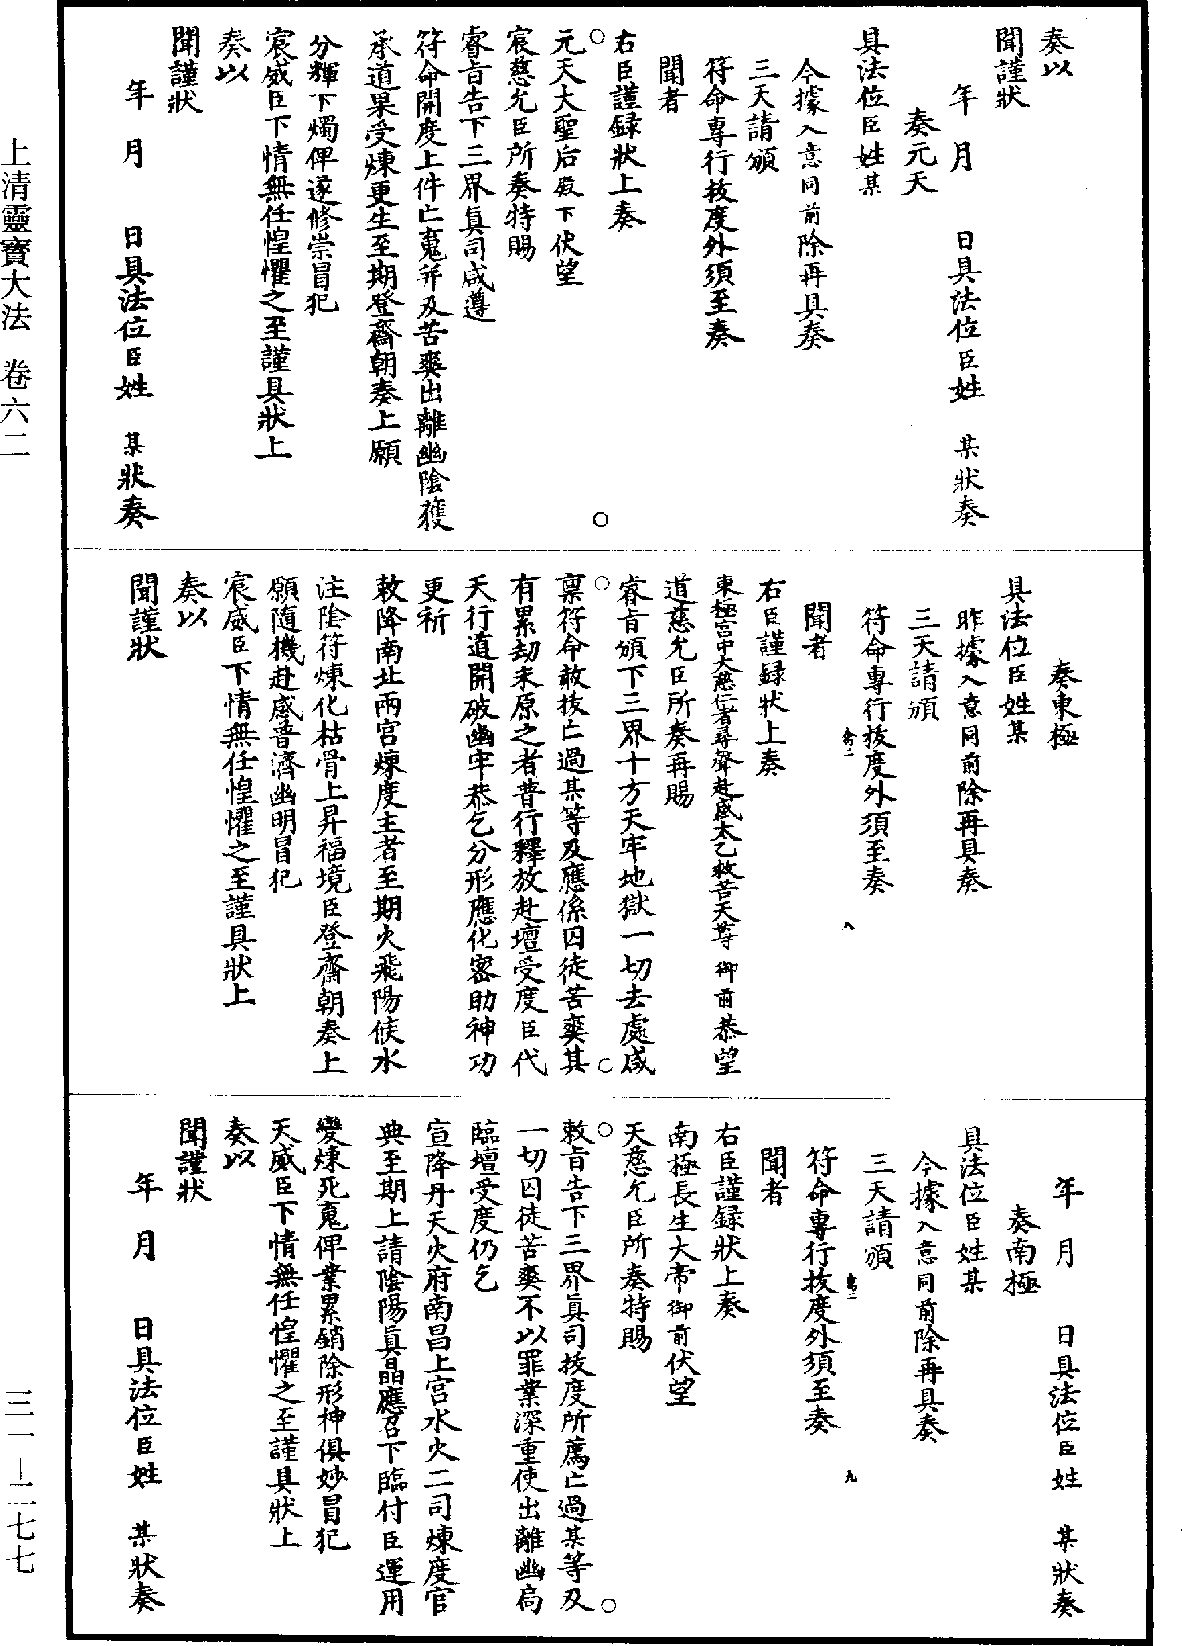 奏以
聞謹狀
年　月　　日具法位臣姓　某狀奏
奏元天
具法位臣姓某
今據入意同前除再具奏
三天請頒
符命專行拔度外須至奏
聞者
右臣謹録狀上奏
元天大聖后殿下伏望
宸慈允臣所奏特賜
睿旨告下三界真司咸遵
符命開度上件亡䰟并及苦爽出離幽陰獲
承道果受煉更生至期登齋朝奏上願
分輝下燭俾遂修崇冒犯
宸威臣下情無任惶懼之至謹具狀上
奏以
聞謹狀
年　月　　日具法位臣姓　某狀奏
奏東極
具法位臣姓某
昨據入意同前除再具奏
三天請頒
符命專行拔度外須至奏
聞者
右臣謹録狀上奏
東極宮中大慈仁者尋聲赴感太乙救苦天尊御前恭望
道慈允臣所奏再賜
睿旨頒下三界十方天牢地獄一切去處咸
稟符命敢拔亡過某等及應係囚徒苦爽其
有累劫未原之者普行釋放赴壇受度臣代
天行道開破幽牢恭乞分形應化密助神功
更祈
敕降南北兩宮煉度主者至期火飛陽候水
注陰符煉化枯骨上昇福境臣登齋朝奏上
願隨機赴感普濟幽明冒犯
宸威臣下情無任惶懼之至謹具狀上
奏以
聞謹狀
年　月　　日具法位臣姓　某狀奏
奏南極
具法位臣姓某
今據入意同前除再具奏
三天請頒
符命專行拔度外須至奏
聞者
右臣謹録狀上奏
南極長生大帝御前伏望
天慈允臣所奏特賜
敕旨告下三界真司拔度所薦亡過某等及
一切囚徒苦爽不以罪業深重使出離幽局
臨壇受度仍乞
宣降丹天火府南昌上宮水火二司煉度官
典至期上請陰陽真晶應召下臨付臣運用
變煉死䰟俾業累銷除形神俱妙冒犯
天威臣下情無任惶懼之至謹具狀上
奏以
聞謹狀
年　月　　日具法位臣姓　某狀奏
八
九
上清靈寶大法　卷六二
三一－二七七